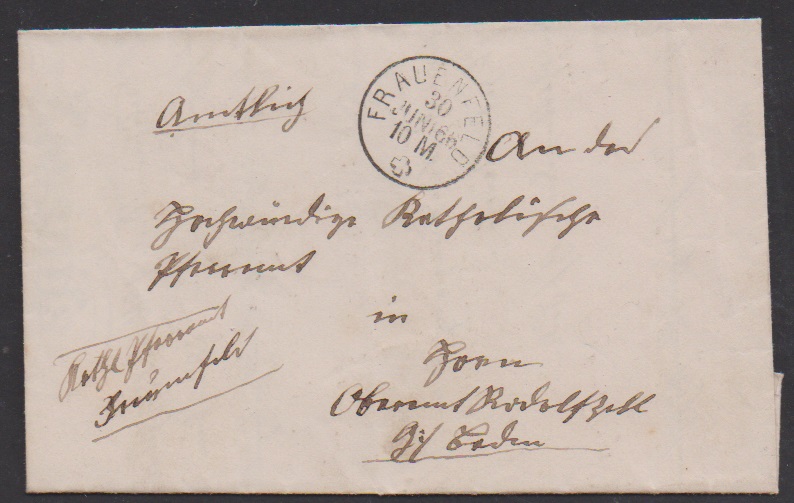 Amtlich
FRAUENFELD
30
JUNI 66
10 M.
An das
Hochwürdige Katholische
Pfarramt
in
Horn
Oberamt Radolfzell
Kathl Pfarramt
Frauenfeld
Baden